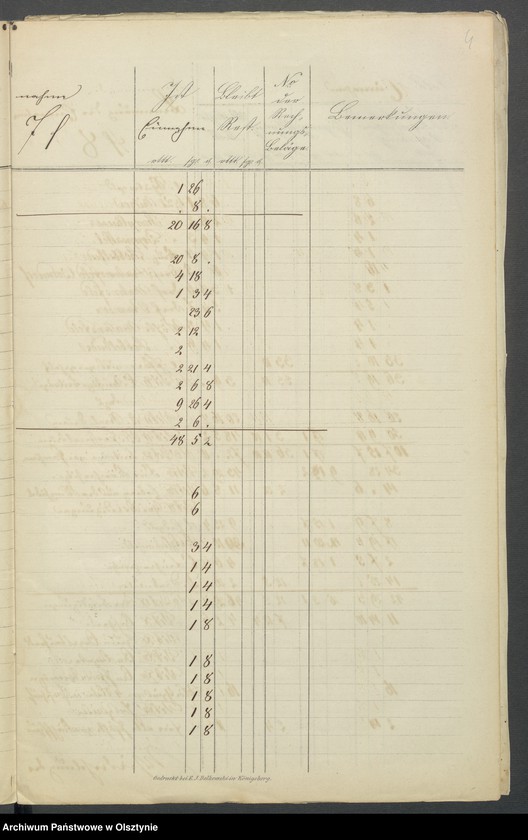 4
nahm
Ist
Einnahm
rtl. sgr. d.
Bleibt
Rest
rtl. sgr. d.
No
der
Rech,
nungs,
beläge
Bemerkungen
1 26
. 8 .
20 16 8
20 8 .
4 18
1 3 4
23 6
2 12
2
2 21 4
2 6 8
9 26 4
2 6 .
48 5 2
6
6
3 4
1 4
1 4
1 4
1 8
1 8
1 8
1 8
1 8
1 8
Gedruckt bei E. J. Dalkowski in Königsberg.
Archiwum Państwowe w Olsztynie